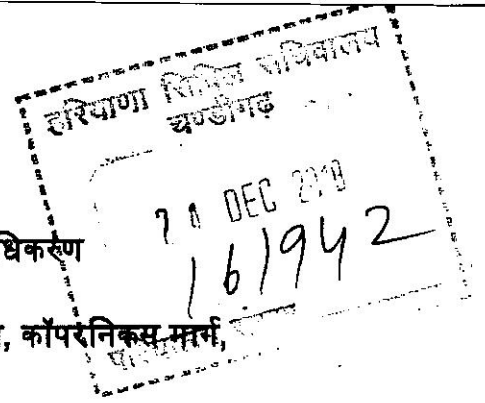 हरियाणा सिविल सचिवालय
चण्डीगढ़
DEC
161942
धिकरण
, कॉपरनिकस मार्ग,